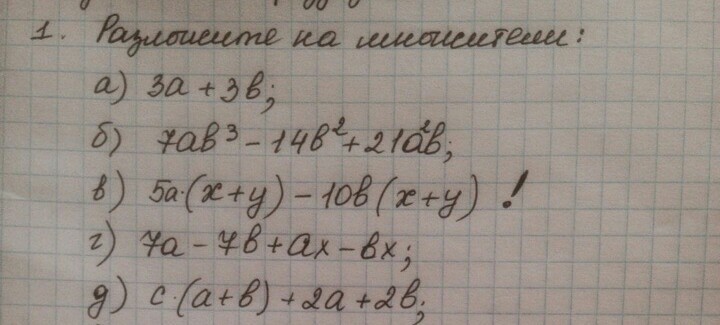 1. Разложите на множители:
а) 3a + 3b;
б) 7ab³ - 14b² + 21a²b;
в) 5a·(x+y) - 10b(x+y) !
г) 7a - 7b + ax - bx;
д) c·(a+b) + 2a + 2b;